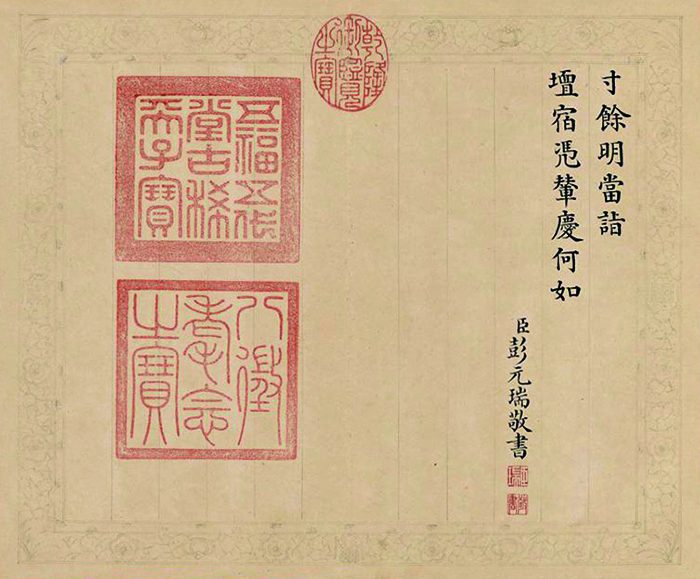 寸餘明當詣
壇宿凴輦慶何如
臣彭元瑞敬書
乾隆御覽之寶
五福五代堂古稀天子寶
八徵耄念之寶